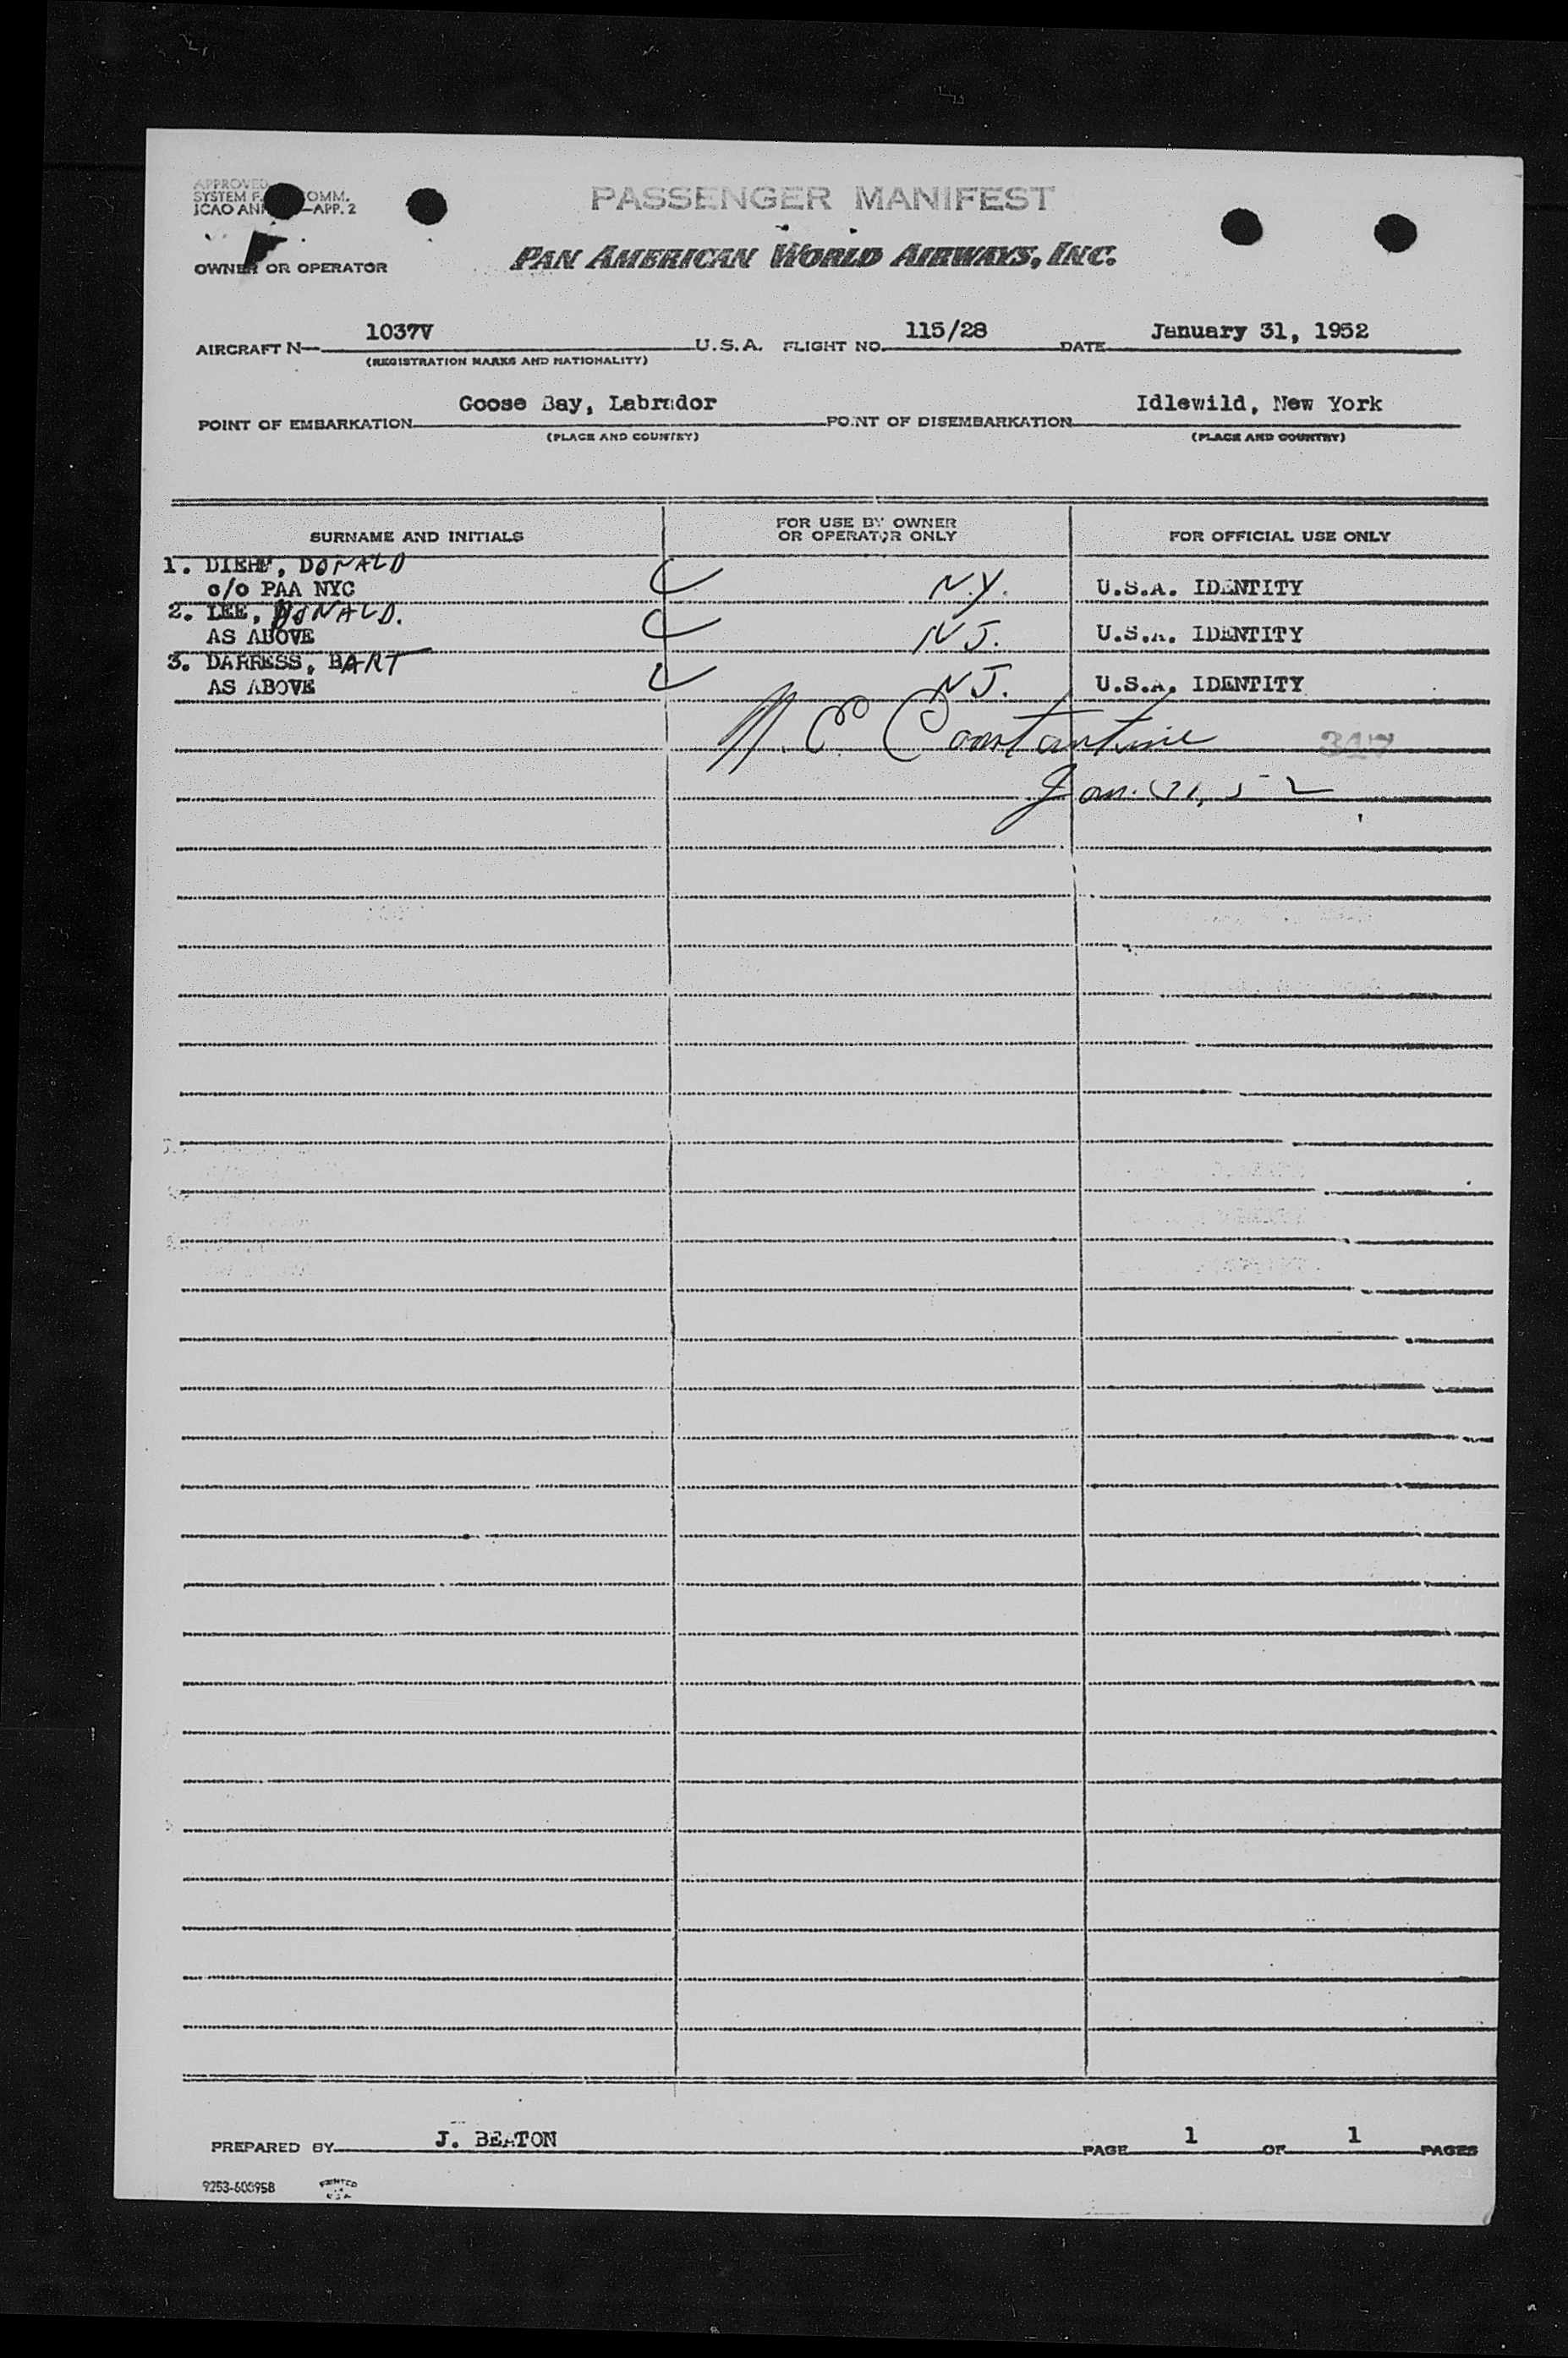 APPROVED
SYSTEM F. COMM.
ICAO AN —APP. 2
PASSENGER MANIFEST
OWNER OR OPERATOR
PAN AMERICAN WORLD AIRWAYS, INC.
AIRCRAFT N— 1037V U.S.A. FLIGHT NO. 115/28 DATE January 31, 1952
(REGISTRATION MARKS AND NATIONALITY)
POINT OF EMBARKATION Goose Bay, Labrador POINT OF DISEMBARKATION Idlewild, New York
(PLACE AND COUNTRY) (PLACE AND COUNTRY)
SURNAME AND INITIALS FOR USE BY OWNER OR OPERATOR ONLY FOR OFFICIAL USE ONLY
1. DIEHM, DONALD
c/o PAA NYC N.Y. U.S.A. IDENTITY
2. LEE, DONALD.
AS ABOVE N J. U.S.A. IDENTITY
3. DARRESS, BART
AS ABOVE N J. U.S.A. IDENTITY
N. C. Constantine 347
Jan. 31, 52
PREPARED BY J. BEATON PAGE 1 OF 1 PAGES
9253-600958 PRINTED IN U.S.A.